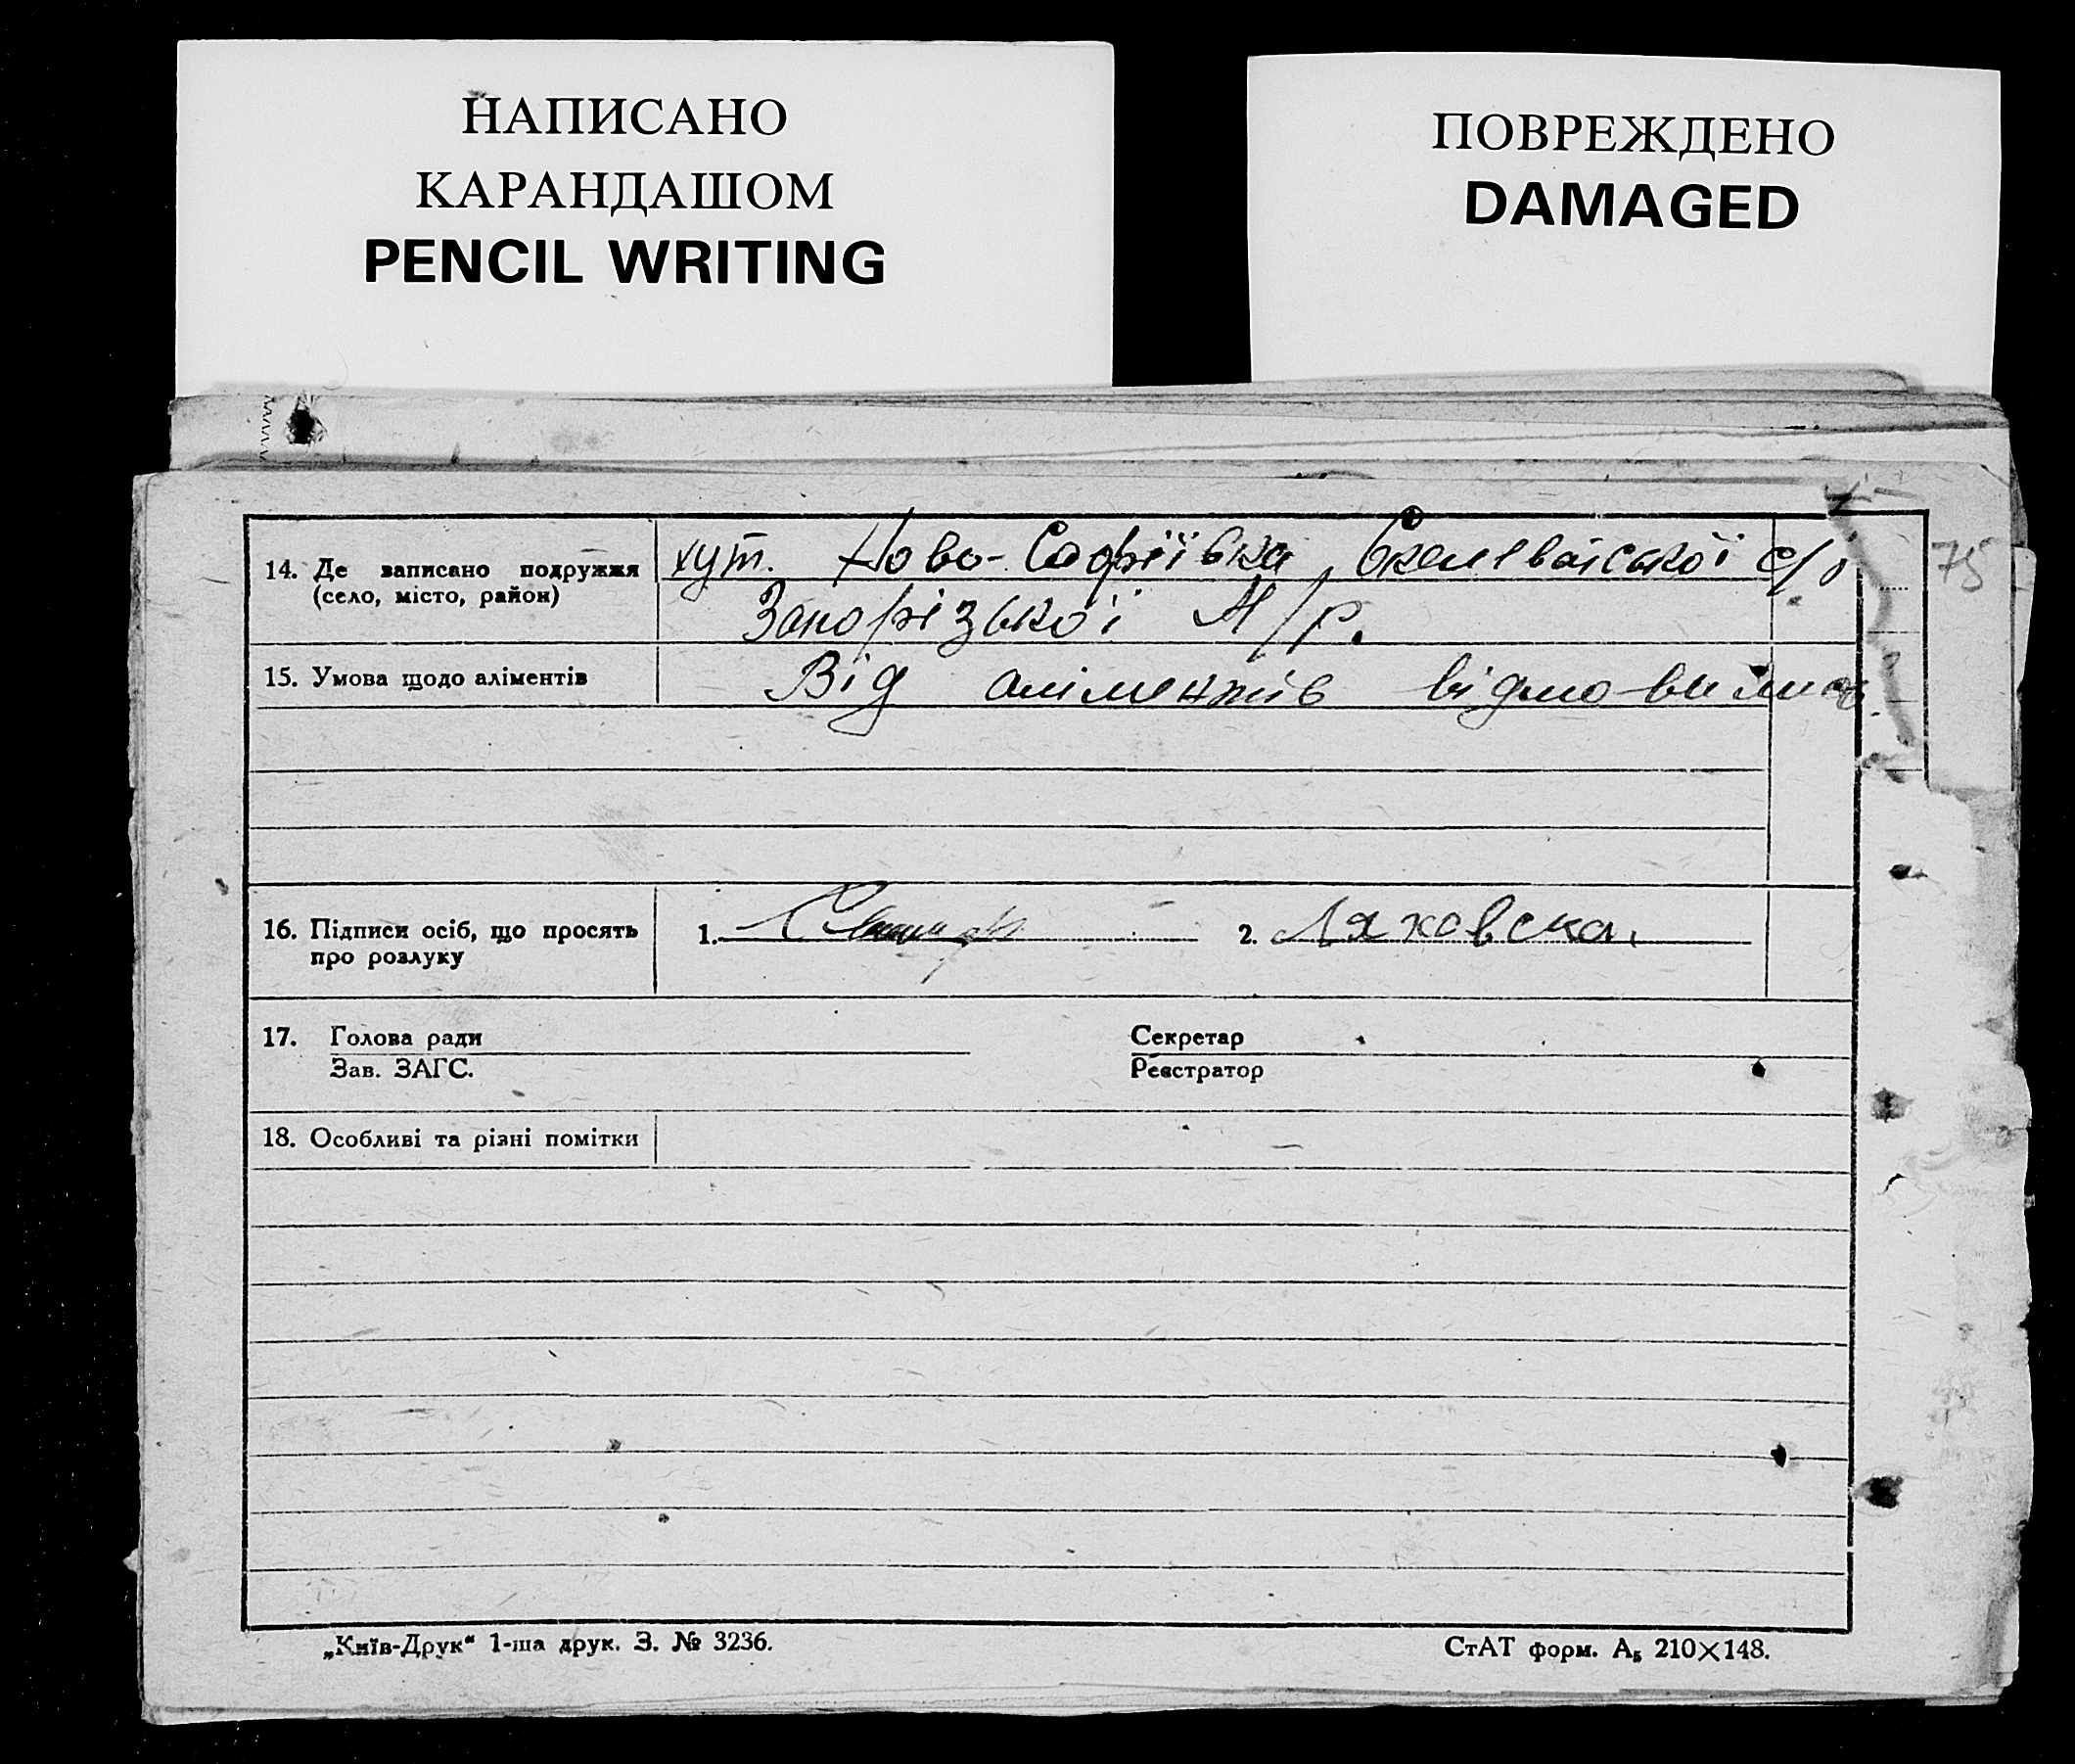 НАПИСАНО
КАРАНДАШОМ
PENCIL WRITING
ПОВРЕЖДЕНО
DAMAGED
75
14. Де записано подружжя хут. Ново-Софіївка с/р
(село, місто, район) Запорізької М/р.
15. Умова щодо аліментів Від аліментів відмовились
16. Підписи осіб, що просять 1. 2. Ляховска.
про розлуку
17. Голова ради Секретар
Зав. ЗАГС. Реєстратор
18. Особливі та різні помітки
„Київ-Друк“ 1-ша друк. З. № 3236. СтАТ форм. А₅ 210×148.